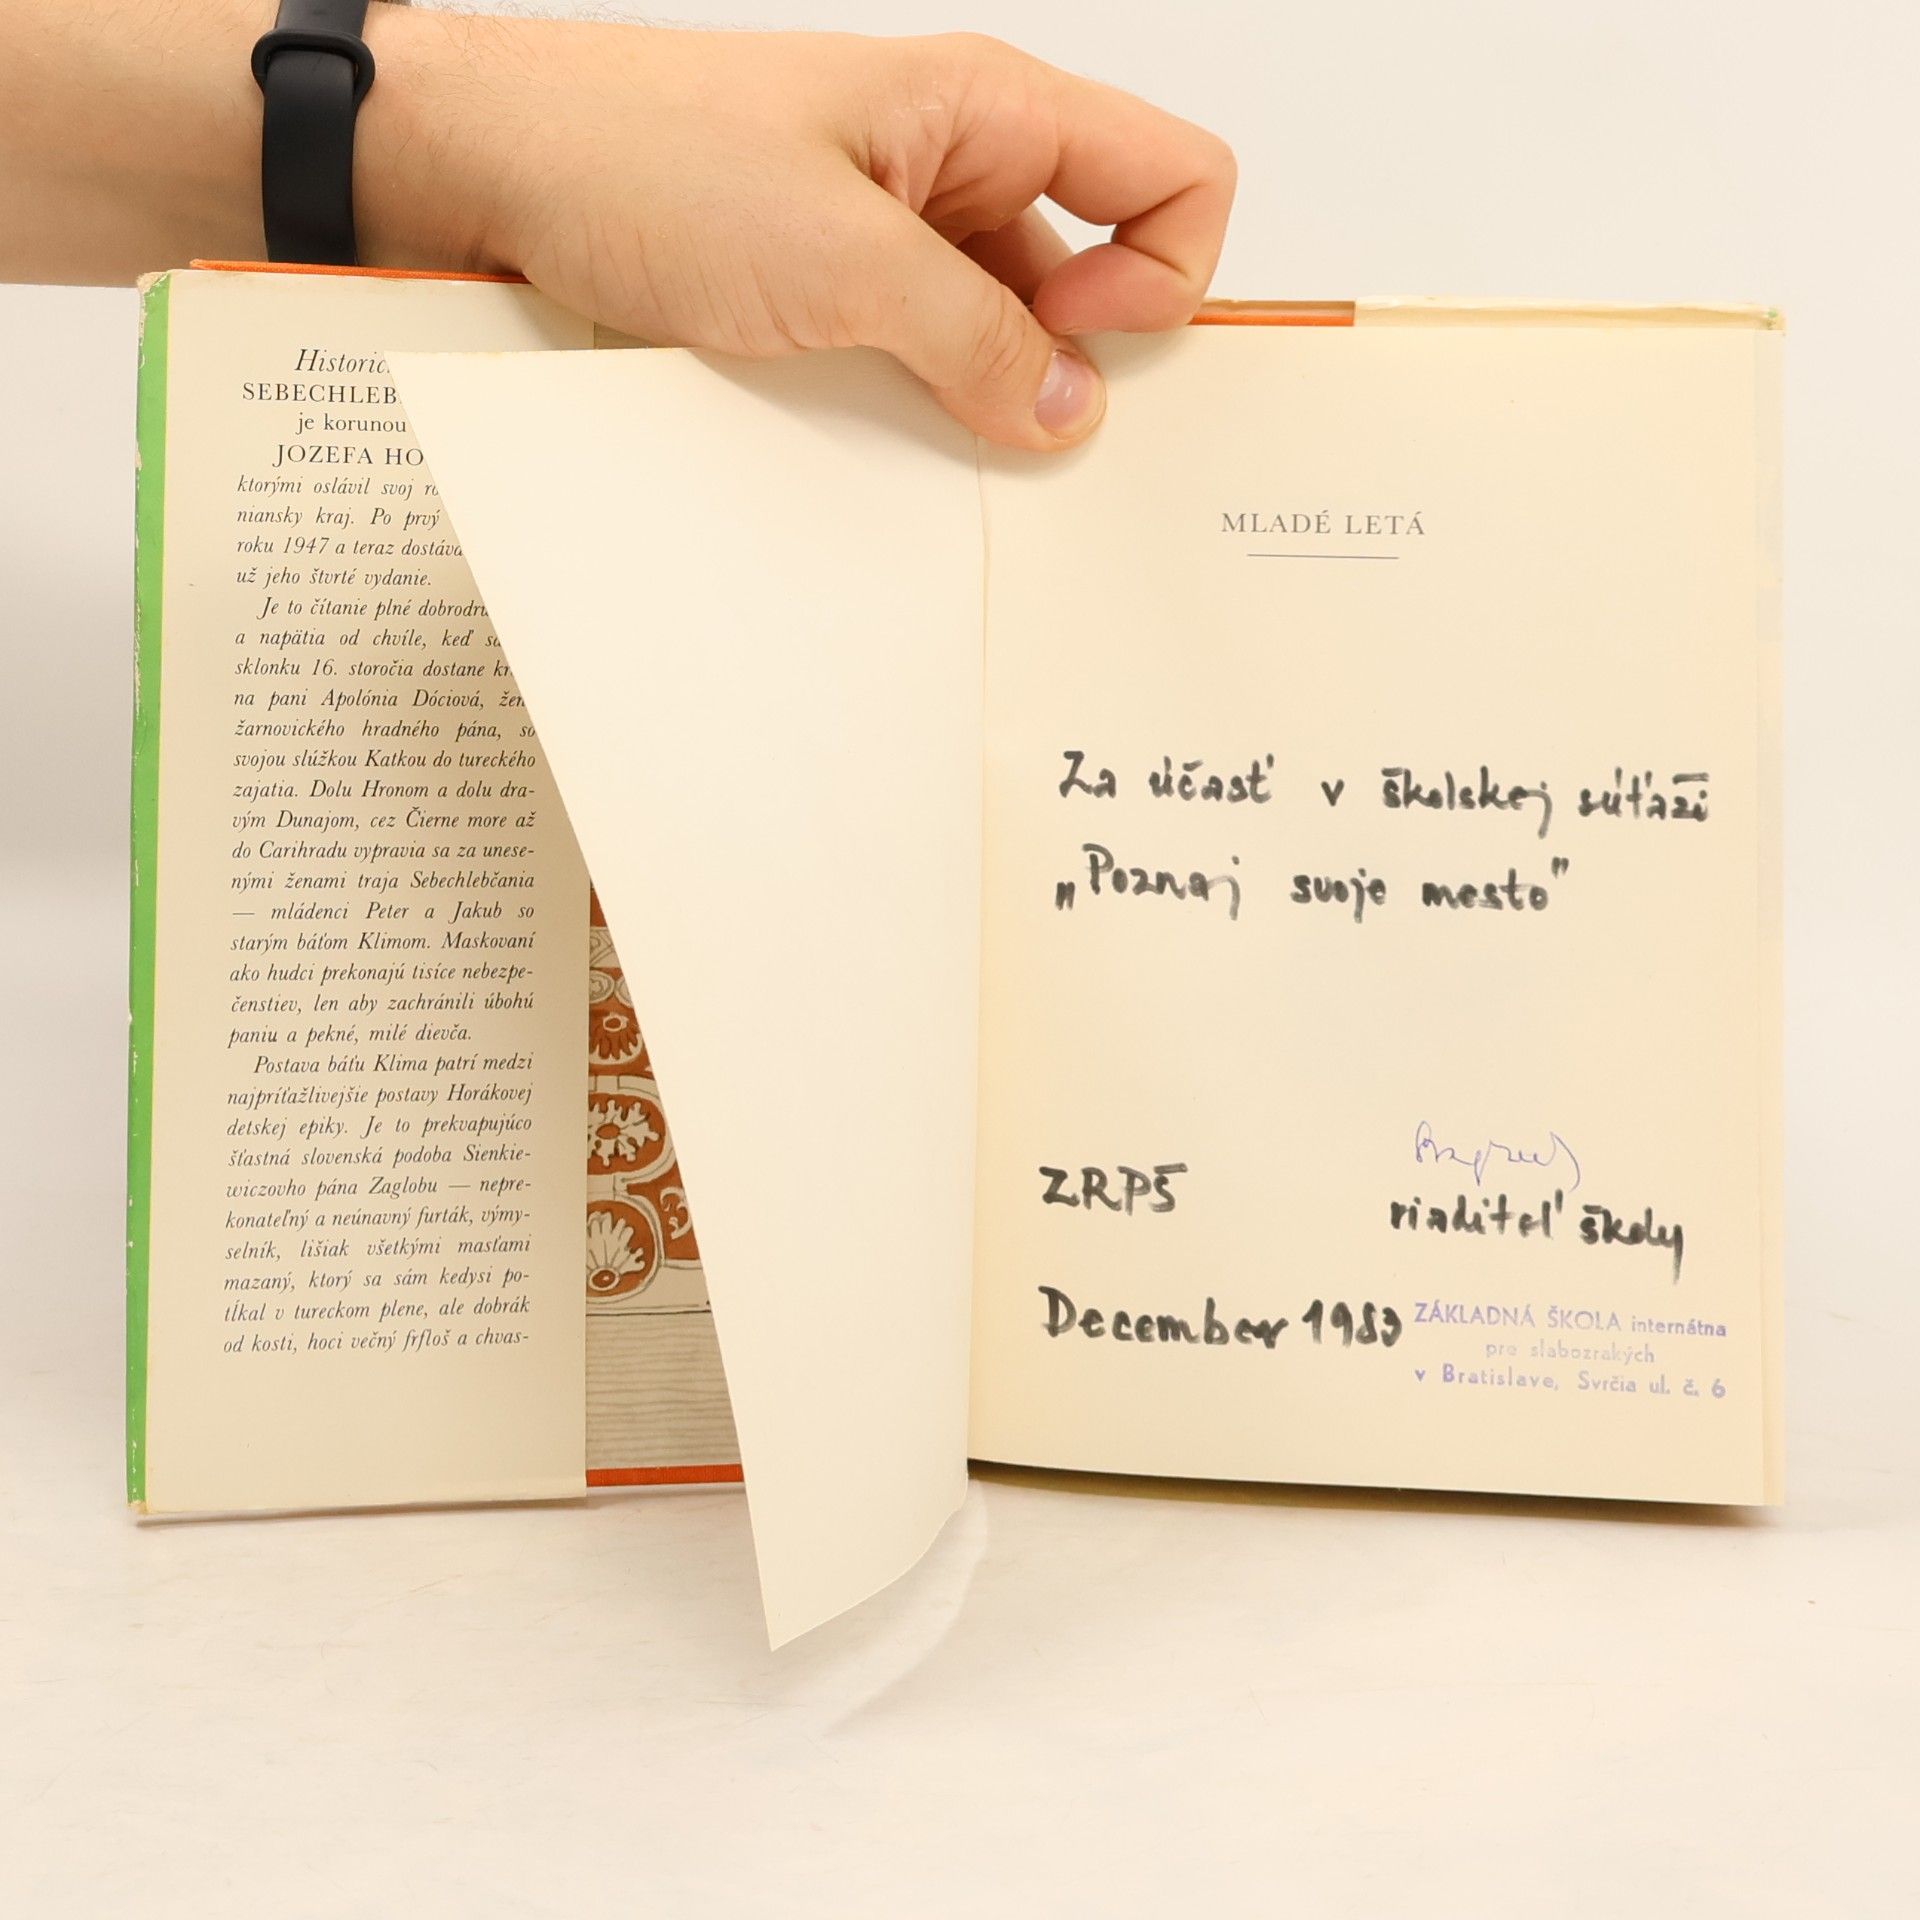 Historic
SEBECHLEB
je korunou
JOZEFA HO
ktorými oslávil svoj
niansky kraj. Po prvý
roku 1947 a teraz dostáva
už jeho štvrté vydanie.
Je to čítanie plné dobrodru
a napätia od chvíle, keď
sklonku 16. storočia dostane
na pani Apolónia Dóciová, žen
žarnovického hradného pána, so
svojou slúžkou Katkou do tureckého
zajatia. Dolu Hronom a dolu dra-
vým Dunajom, cez Čierne more až
do Carihradu vypravia sa za unese-
nými ženami traja Sebechlebčania
— mládenci Peter a Jakub so
starým báťom Klimom. Maskovaní
ako hudci prekonajú tisíce nebezpe-
čenstiev, len aby zachránili úbohú
paniu a pekné, milé dievča.
Postava báťu Klima patrí medzi
najpríťažlivejšie postavy Horákovej
detskej epiky. Je to prekvapujúco
šťastná slovenská podoba Sienkie-
wiczovho pána Zaglobu — nepre-
konateľný a neúnavný furták, výmy-
selník, lišiak všetkými masťami
mazaný, ktorý sa sám kedysi po-
tĺkal v tureckom plene, ale dobrák
od kosti, hoci večný fŕfloš a chvas-
MLADÉ LETÁ
Za účasť v školskej súťaži
„Poznaj svoje mesto"
ZRPŠ
riaditeľ školy
December 1983
ZÁKLADNÁ ŠKOLA internátna
pre slabozrakých
v Bratislave, Svrčia ul. č. 6